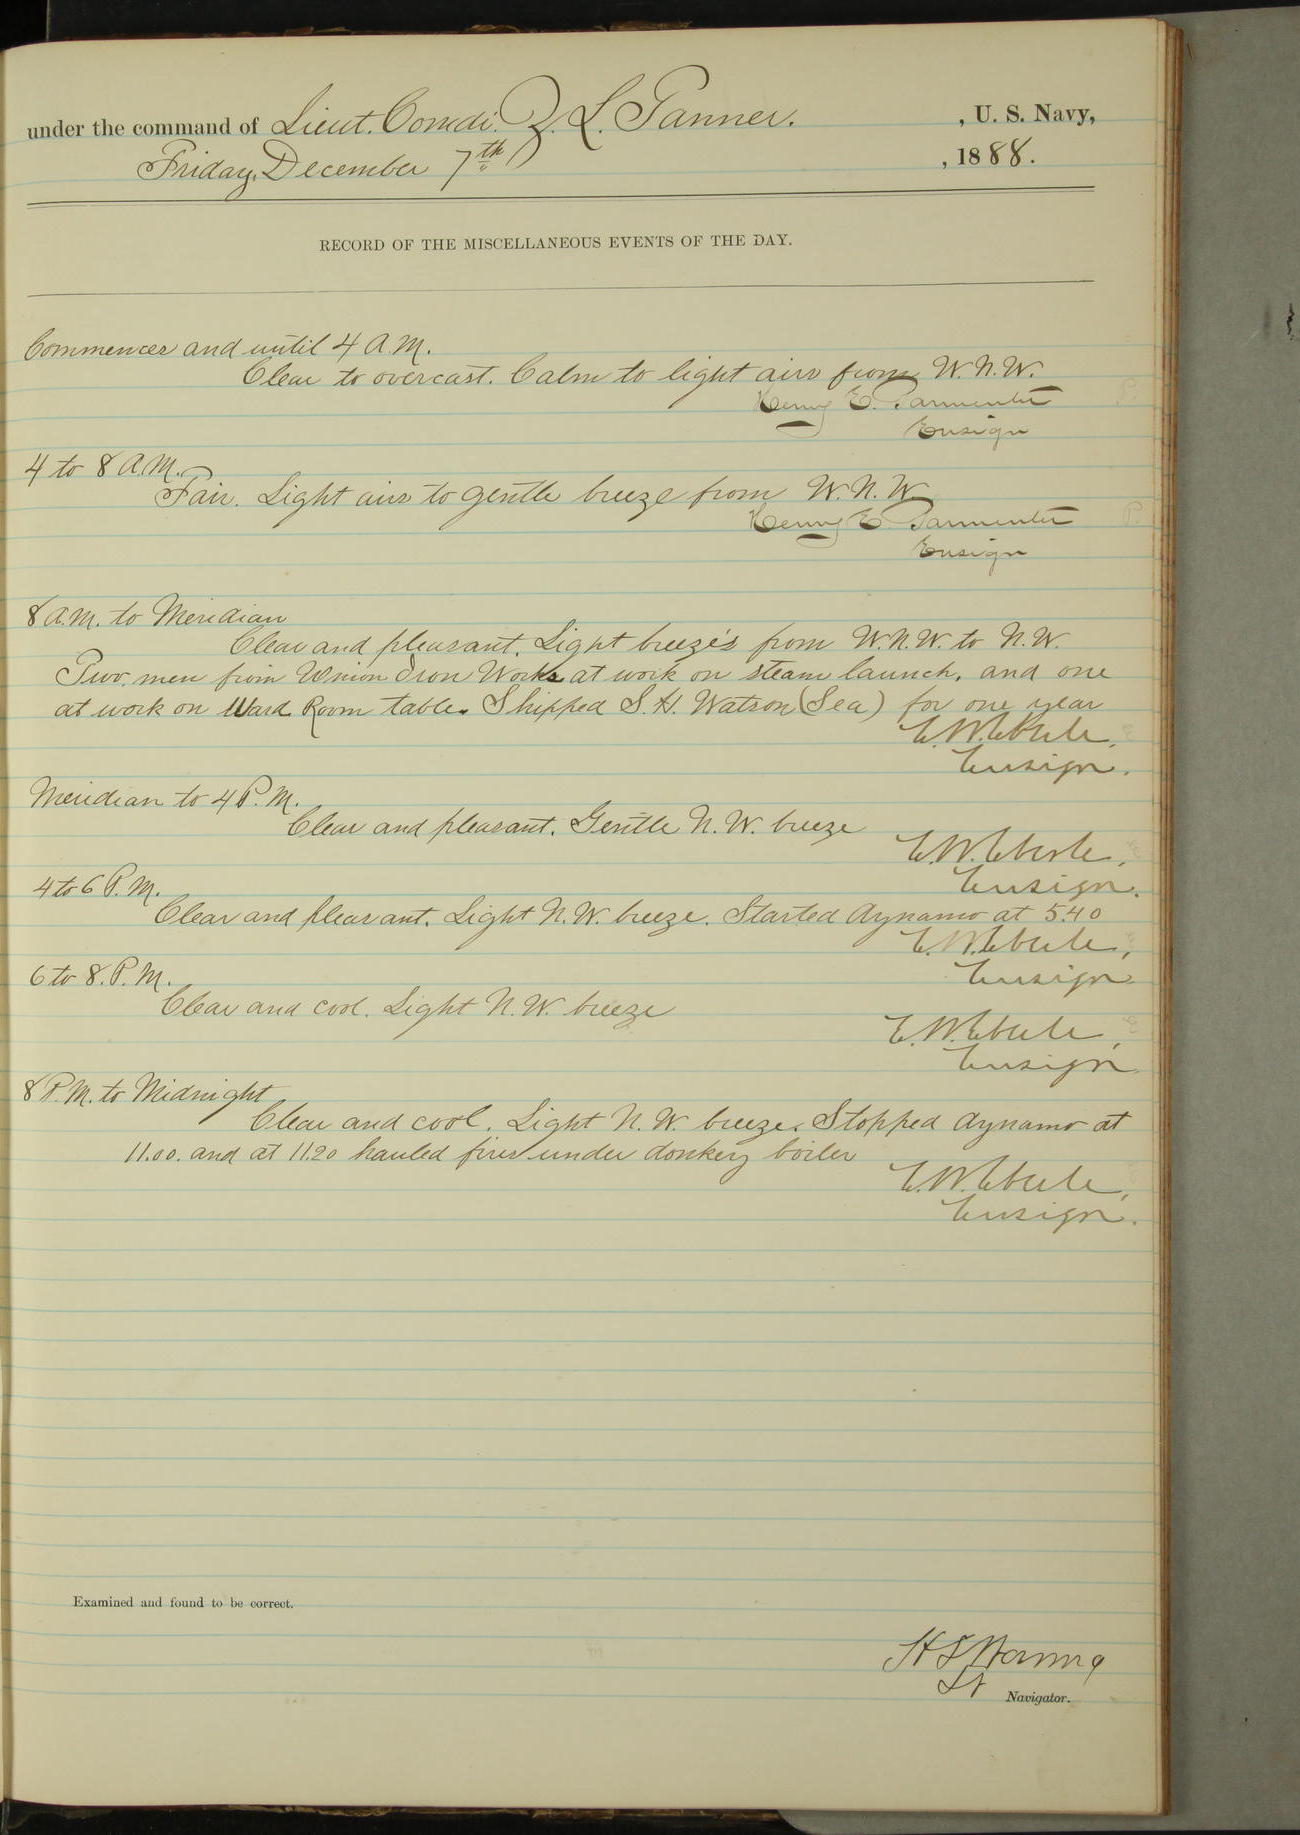 under the command of Lieut. Comdr. Z. L. Tanner. , U. S. Navy,
Friday, December 7th , 1888.
RECORD OF THE MISCELLANEOUS EVENTS OF THE DAY.
Commences and until 4 A.M.
Clear to overcast. Calm to light airs from W.N.W.
Henry E. Parmenter
Ensign
4 to 8 A.M.
Fair. Light airs to gentle breeze from W.N.W.
Henry E. Parmenter
Ensign
8 A.M. to Meridian
Clear and pleasant. Light breeze's from W.N.W. to N.W.
Two men from Union Iron Works at work on steam launch, and one
at work on Ward Room table. Shipped S. H. Watson (Sea) for one year
E. W. Eberle,
Ensign.
Meridian to 4 P.M.
Clear and pleasant. Gentle N.W. breeze
E. W. Eberle,
Ensign.
4 to 6 P.M.
Clear and pleasant. Light N.W. breeze. Started dynamo at 5.40
E. W. Eberle,
Ensign
6 to 8. P.M.
Clear and cool. Light N.W. breeze
E. W. Eberle,
Ensign.
8 P.M. to Midnight
Clear and cool. Light N.W. breeze. Stopped dynamo at
11.00. and at 11.20 hauled fires under donkey boiler
E. W. Eberle,
Ensign.
Examined and found to be correct.
Lt
Navigator.